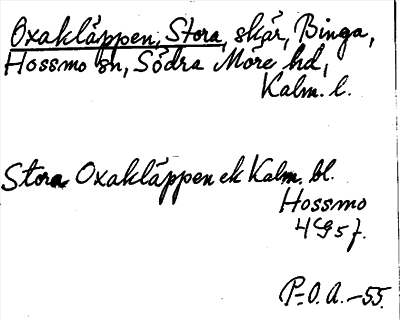 Oxakläppen, Stora, skär, Binga,
Hossmo sn, Södra Möre hd,
Kalm. l.
Stora Oxakläppen ek Kalm. bl.
Hossmo
4G 5 f.
P-O. A. -55.